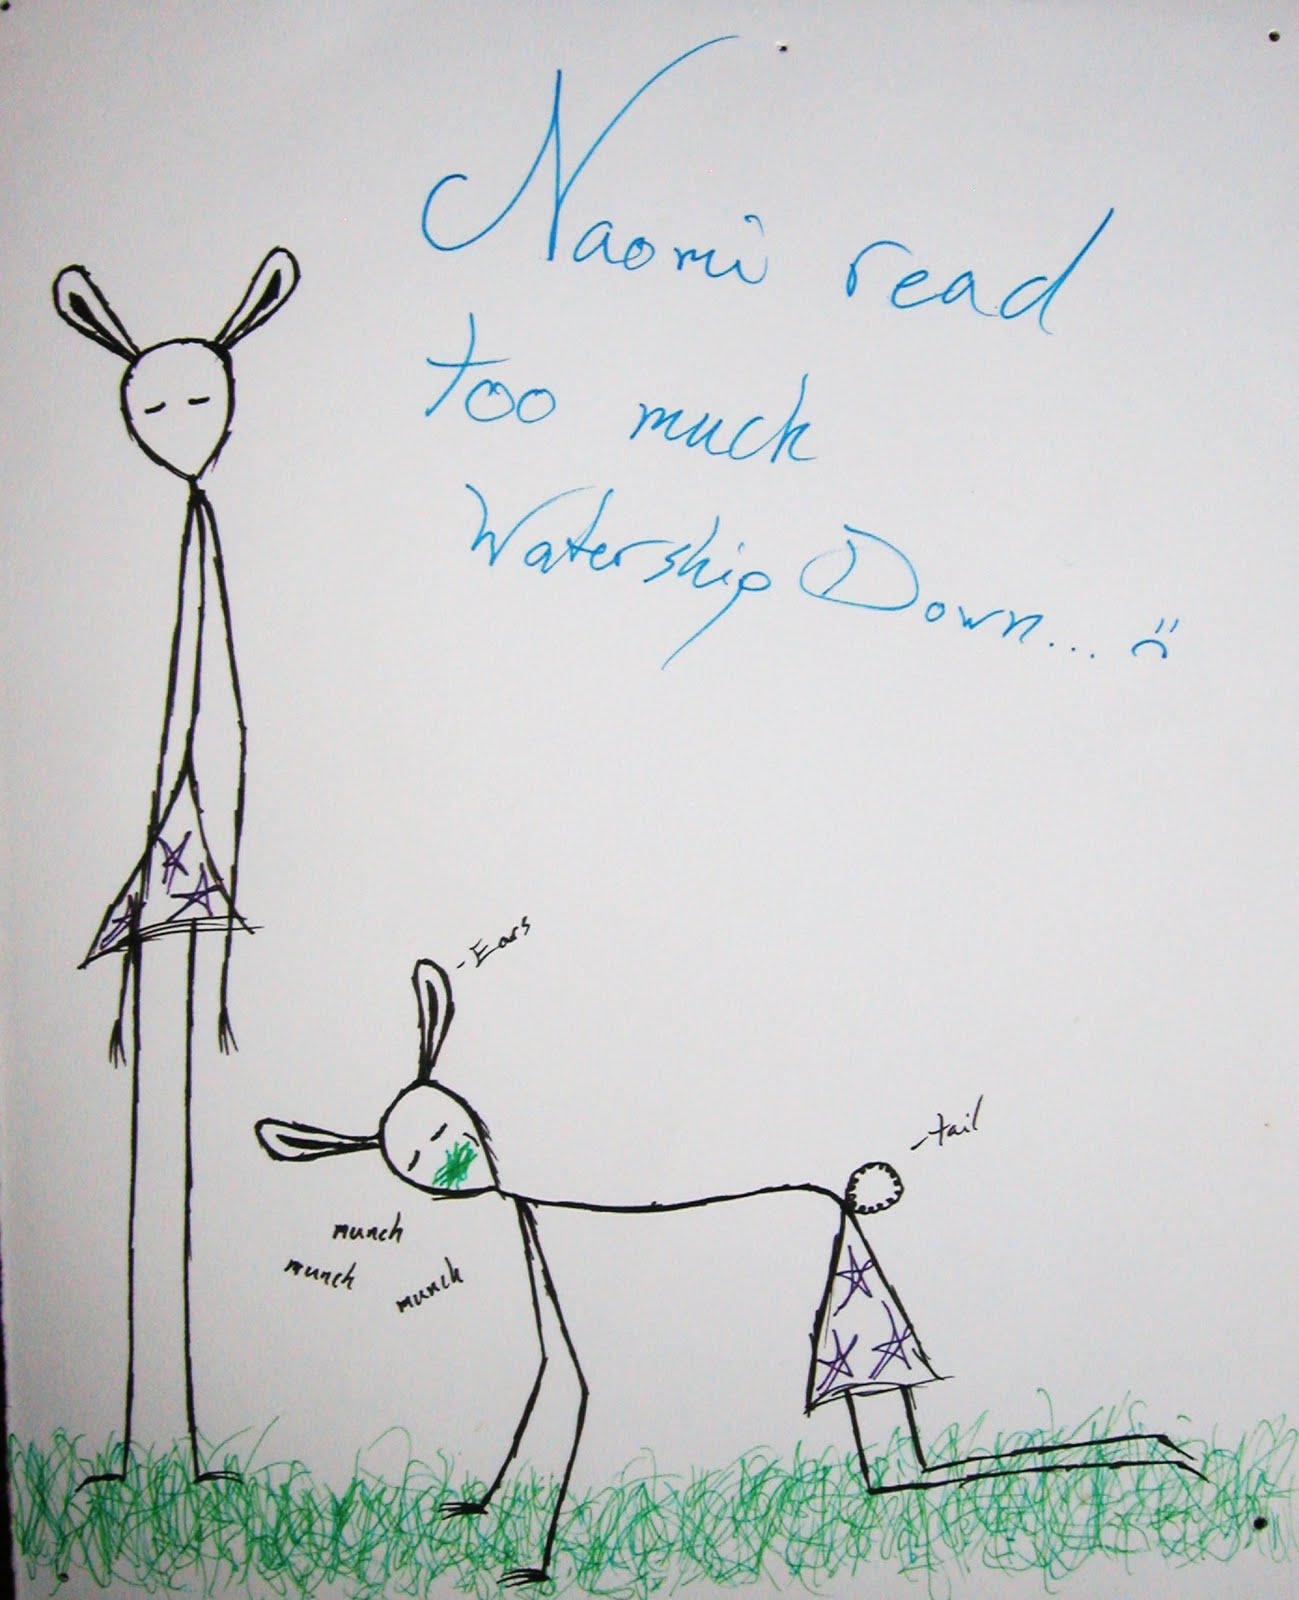 Naomi read
too much
Watership Down... :(
-Ears
-tail
munch
munch
munch